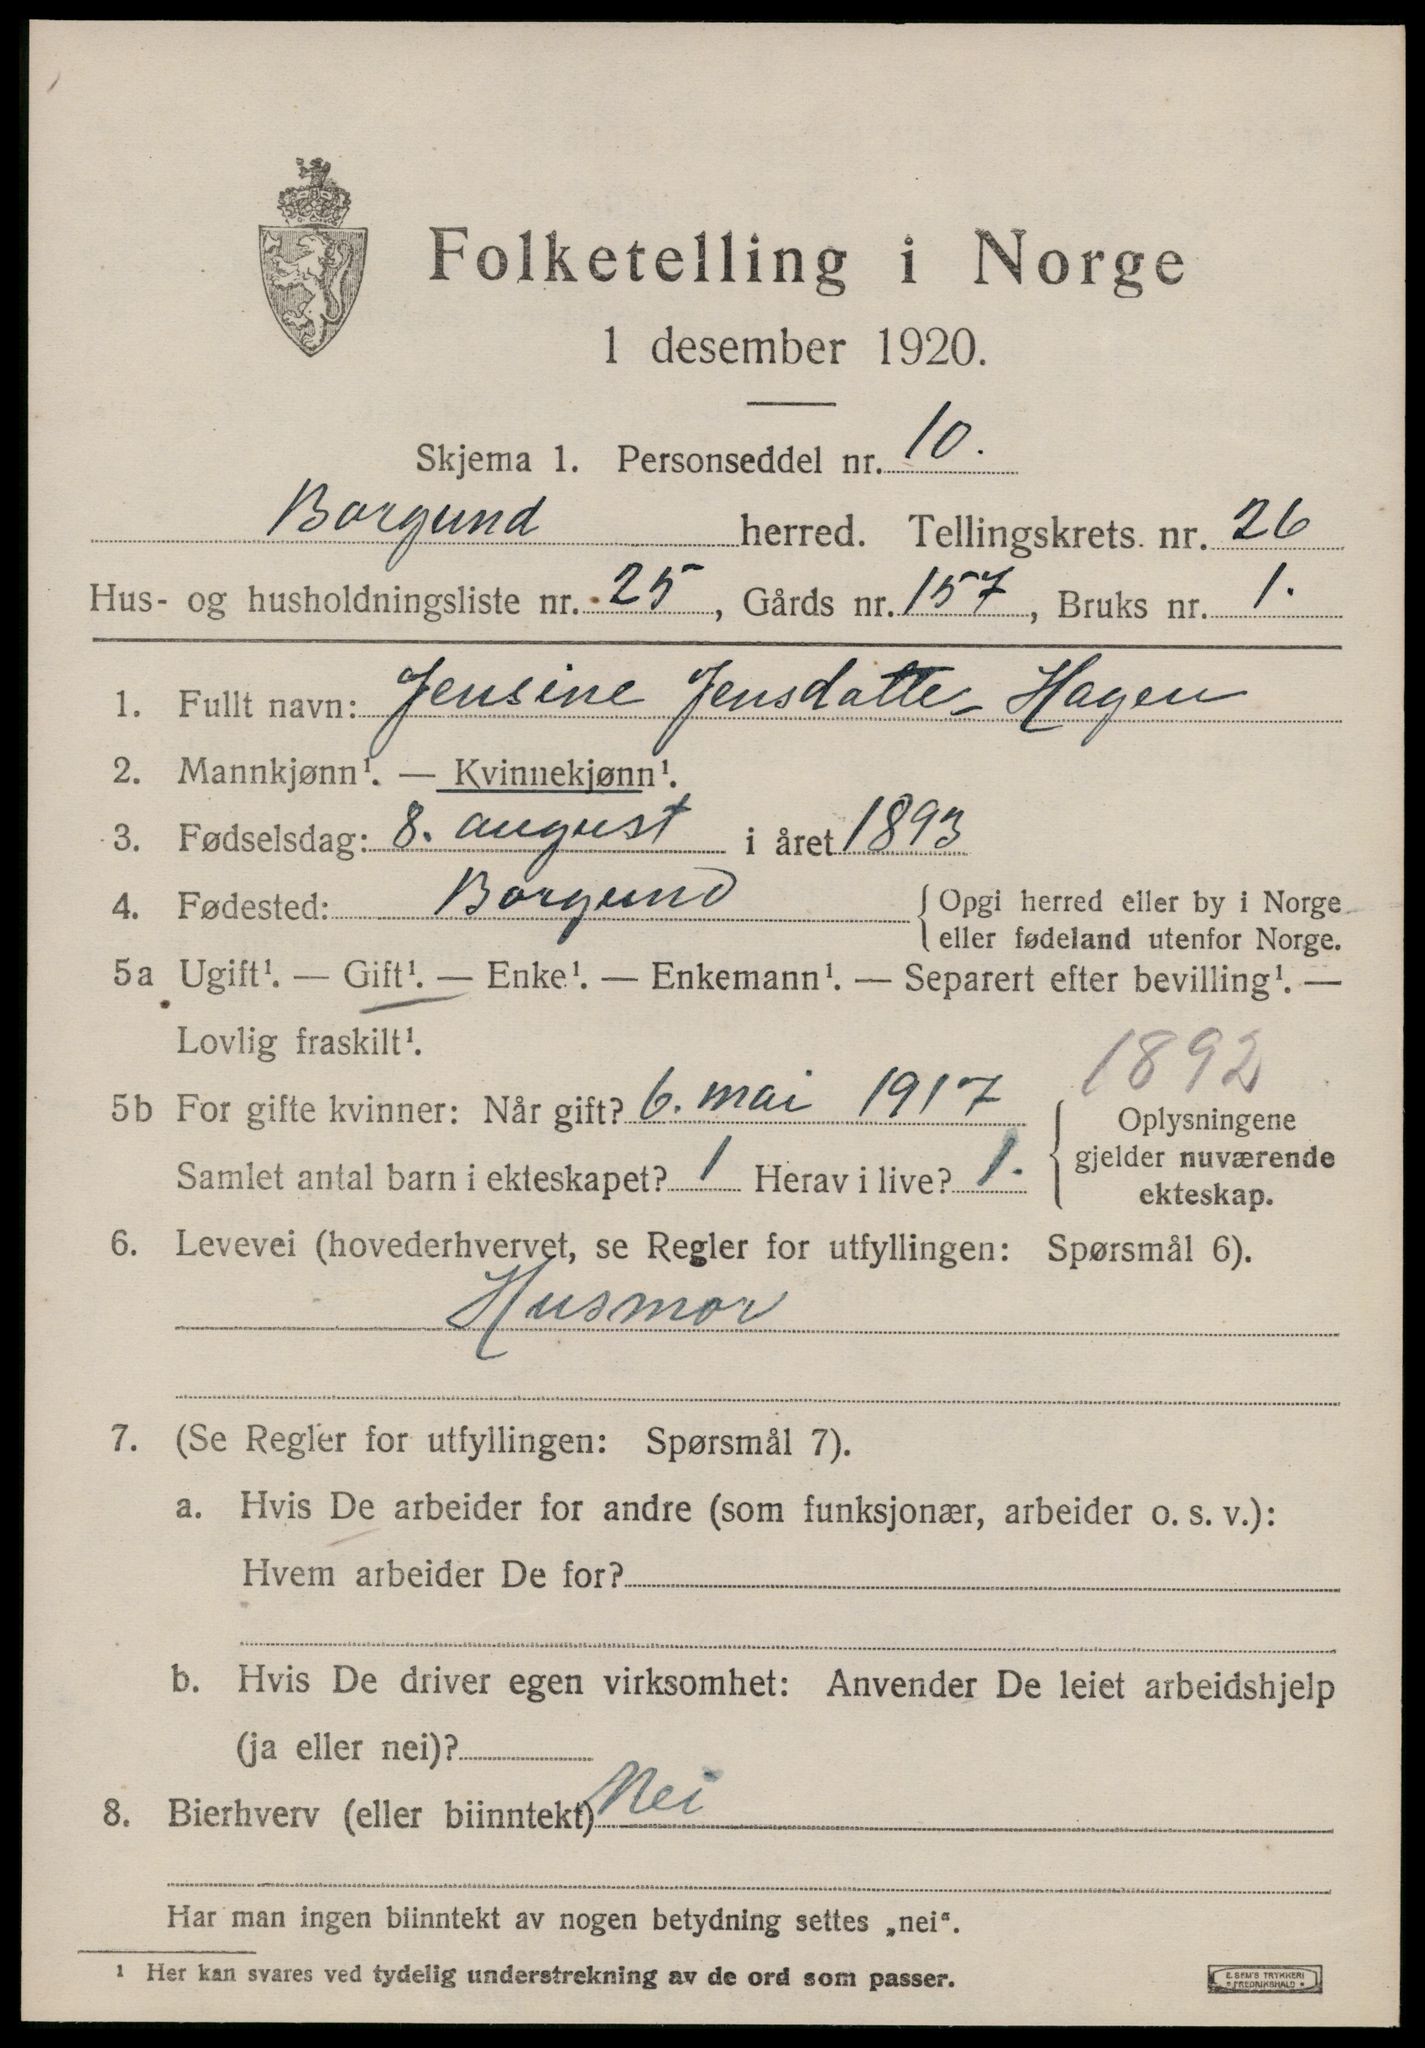 Folketelling i Norge
1 desember 1920.
Skjema 1. Personseddel nr. 10.
Borgund herred. Tellingskrets nr. 26
Hus- og husholdningsliste nr. 25, Gårds nr. 157, Bruks nr. 1.
1. Fullt navn: Jensine Jensdatter Hagen
2. Mannkjønn¹. — Kvinnekjønn¹.
3. Fødselsdag: 8. august i året 1893
4. Fødested: Borgund { Opgi herred eller by i Norge
eller fødeland utenfor Norge.
5a Ugift¹. — Gift¹. — Enke¹. — Enkemann¹. — Separert efter bevilling¹. —
Lovlig fraskilt¹.
1892
5b For gifte kvinner: Når gift? 6. mai 1917
Samlet antal barn i ekteskapet? 1 Herav i live? 1.
{ Oplysningene
gjelder nuværende
ekteskap.
6. Levevei (hovederhvervet, se Regler for utfyllingen: Spørsmål 6).
Husmor
7. (Se Regler for utfyllingen: Spørsmål 7).
a. Hvis De arbeider for andre (som funksjonær, arbeider o. s. v.):
Hvem arbeider De for?
b. Hvis De driver egen virksomhet: Anvender De leiet arbeidshjelp
(ja eller nei)?
8. Bierhverv (eller biinntekt) Nei
Har man ingen biinntekt av nogen betydning settes „nei“.
¹ Her kan svares ved tydelig understrekning av de ord som passer.
E. SEM'S TRYKKERI
* FREDRIKSHALD *